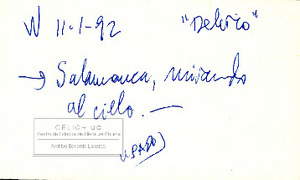 N 11-1-92 "Delirio"
→ Salamanca, mirando
al cielo. —
CELICH UC
Centro de Estudios de Literatura Chilena
(USADO)